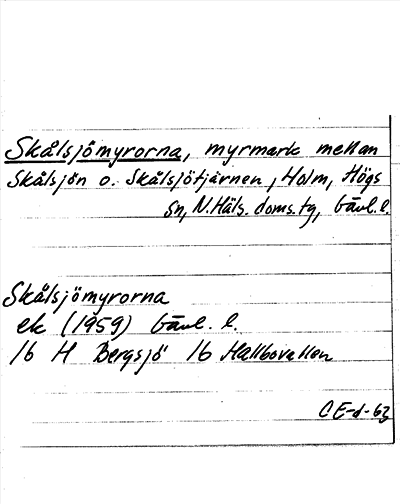 Skålsjömyrorna, myrmark mellan
Skålsjön o. Skålsjötjärnen, Holm, Högs
sn, N.Häls. doms.tg, Gävl. l.
Skålsjömyrorna
ek (1959) Gävl. l.
16 H Bergsjö 16 Hallbovallen
CE-d-63